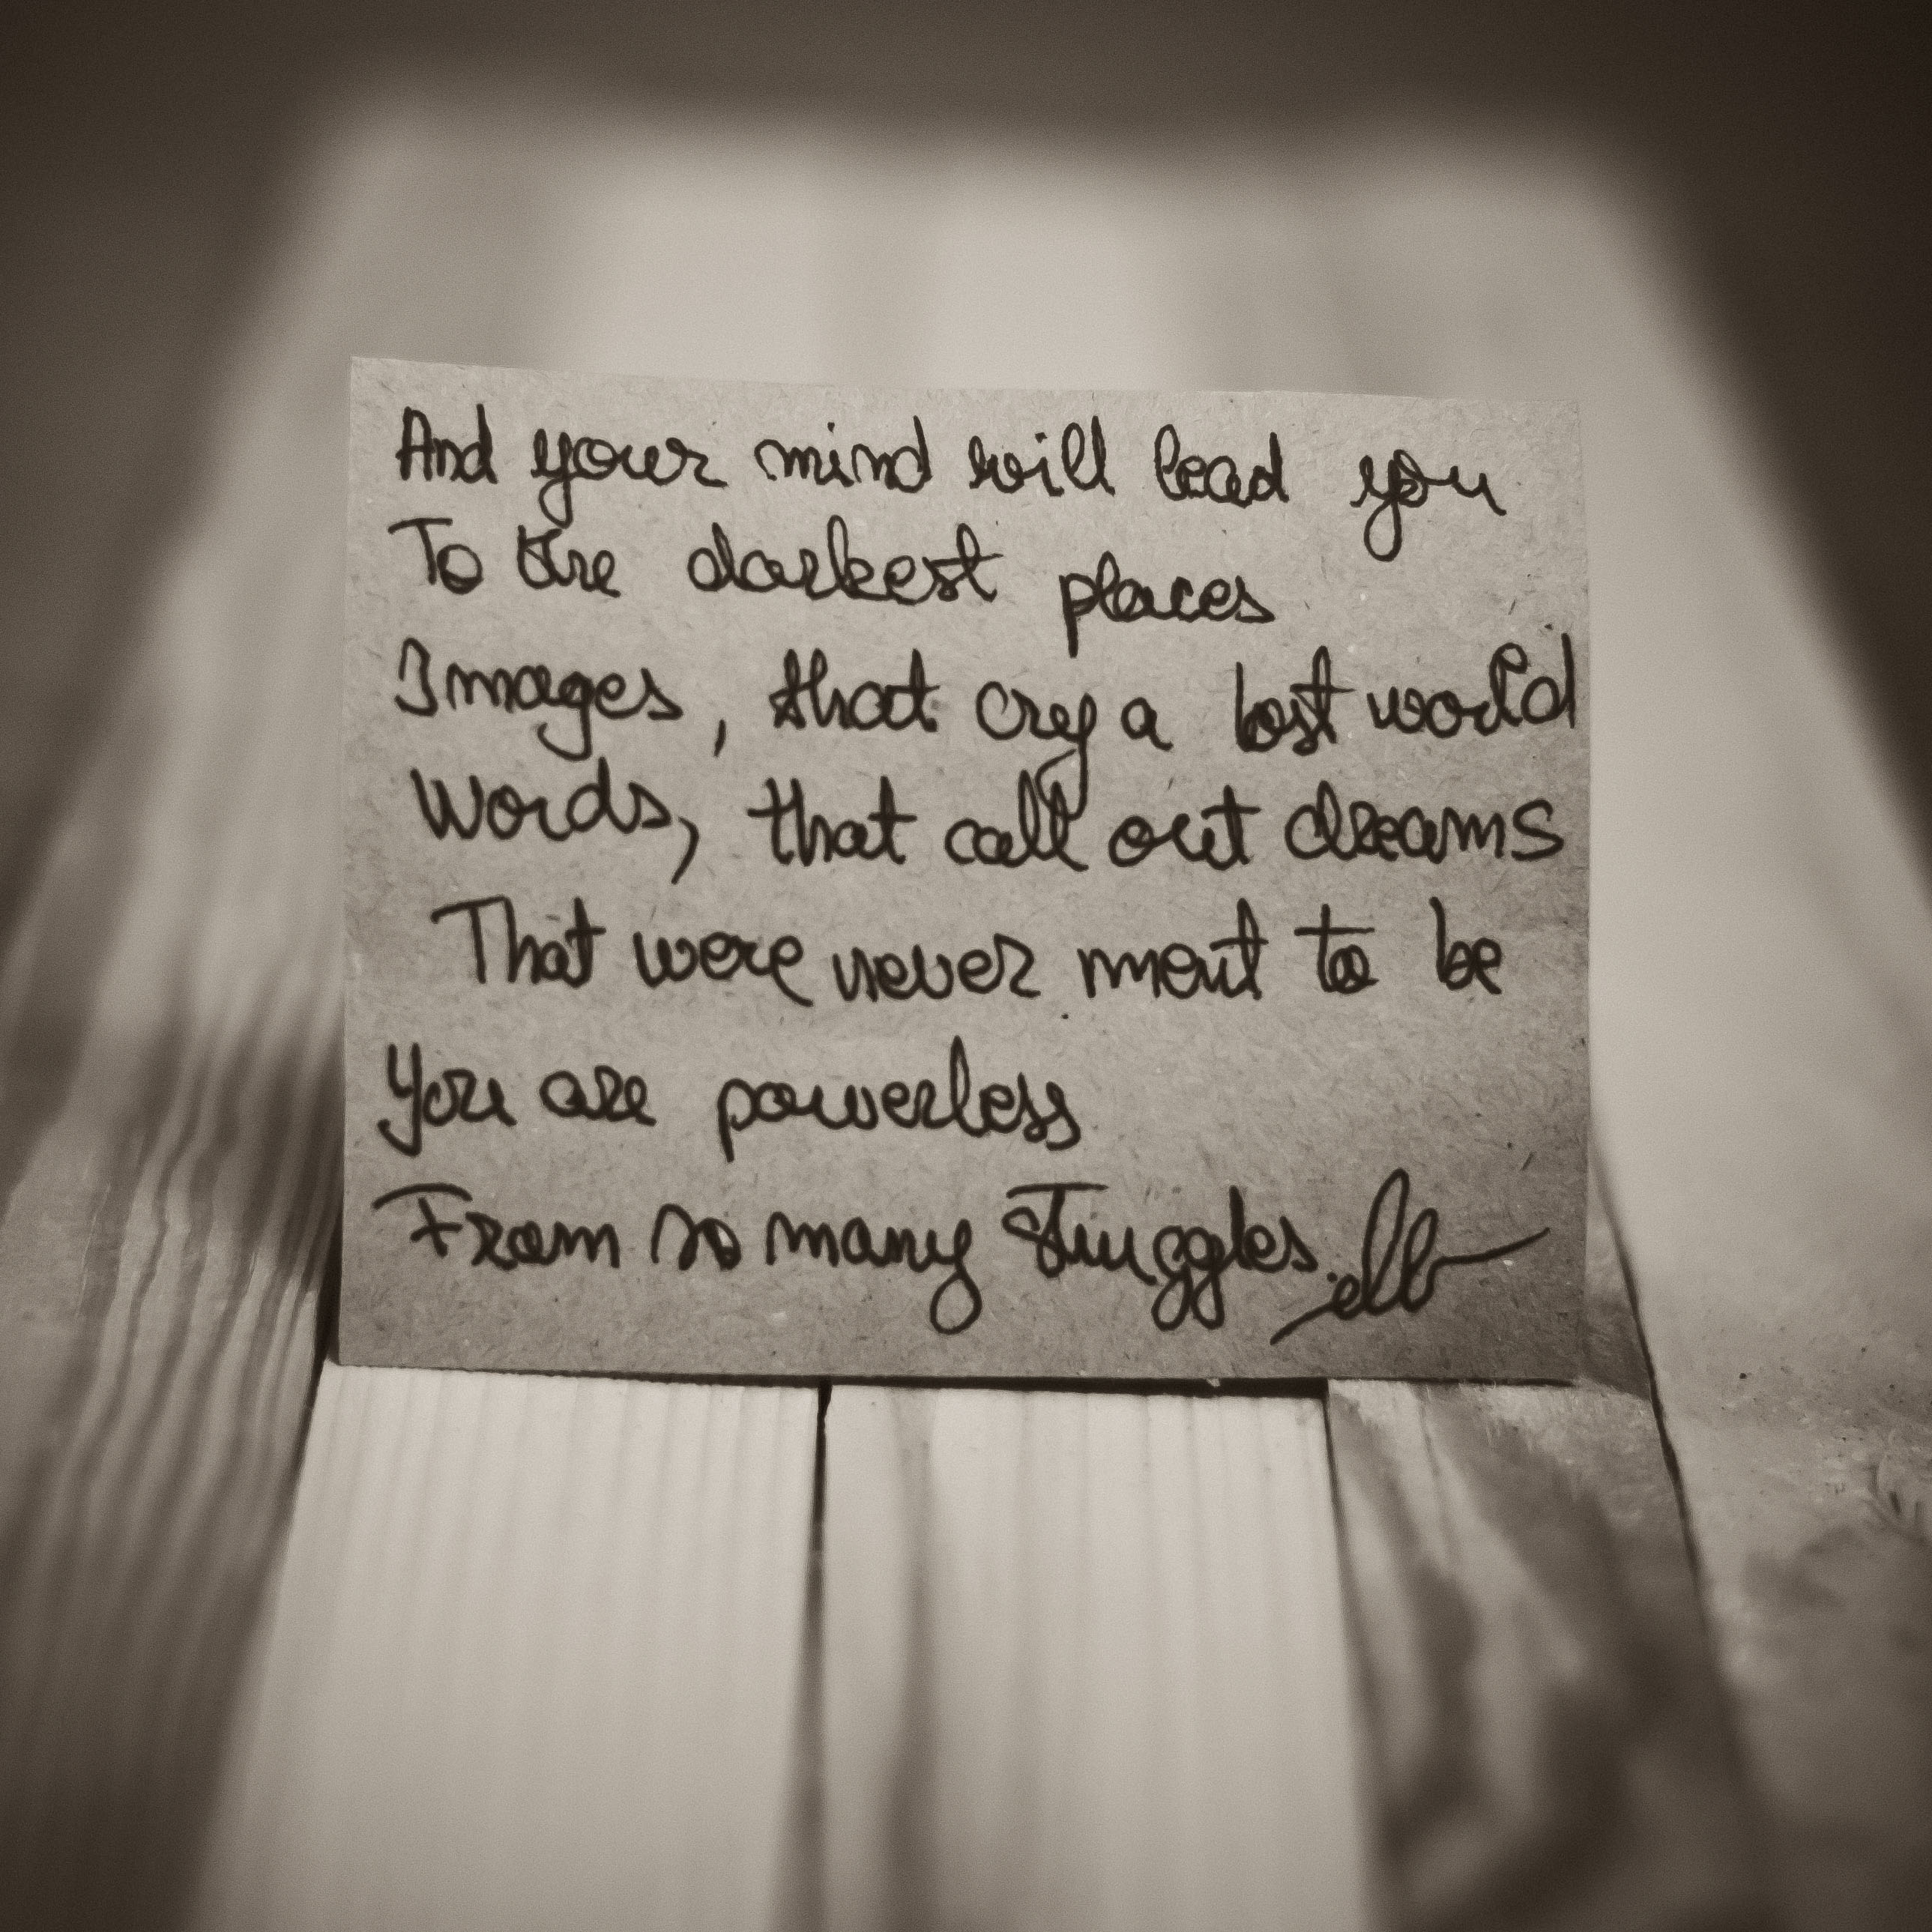 And your mind will lead you
To the darkest places
Images, that cry a lost world
Words, that call out dreams
That were never ment to be
You are powerless
From so many struggles